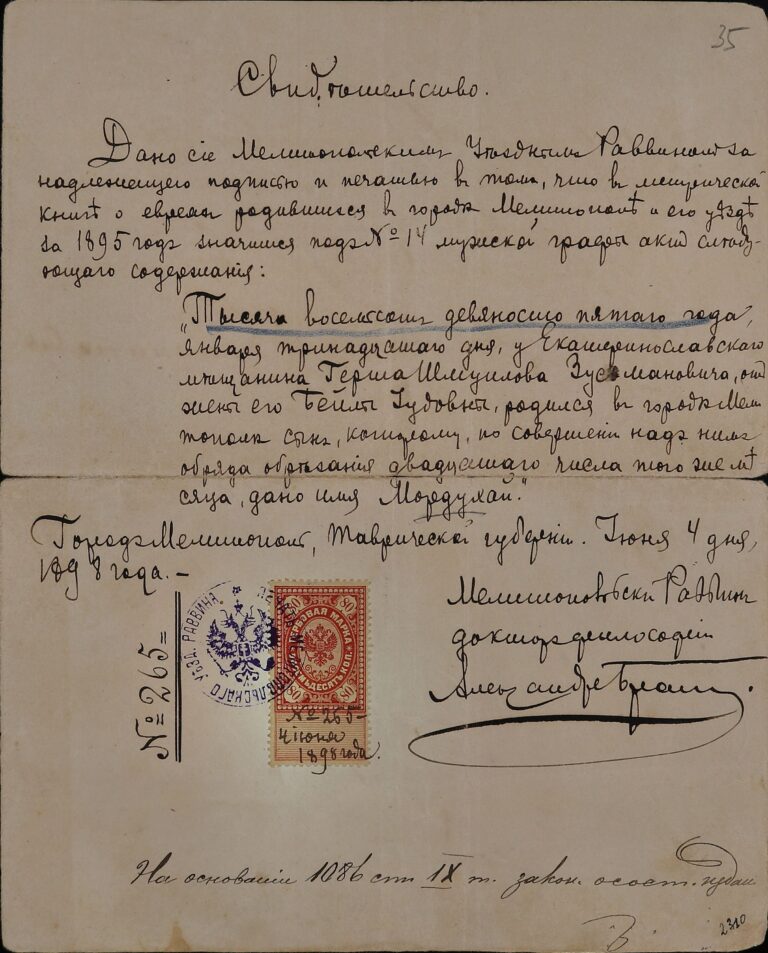 35
Свидѣтельство.
Дано сіе Мелитопольскимъ Уѣзднымъ Раввиномъ за
надлежащего подписью и печатью въ томъ, что въ метрической
книгѣ о евреяхъ родившихся въ городѣ Мелитополѣ и его уѣздѣ
за 1895 годъ значится подъ № 14 мужской графы актъ слѣду-
ющаго содержанія:
"Тысяча восемьсотъ девяносто пятаго года,
января тринадцатаго дня, у Екатеринославскаго
мѣщанина Герша Шмуилова Зусмановича, отъ
жены его Бейлы Іудовны, родился въ городѣ Мели
тополѣ сынъ, которому, по совершеніи надъ нимъ
обряда обрѣзанія двадцатаго числа того же мѣ
сяца, дано имя Мордухай."
Городъ Мелитополь, Таврической губерніи. Іюня 4 дня,
1898 года. –
Мелитопольскій Раввинъ
докторъ философіи
Александръ
№ 265
УѢЗД. РАВВИНА
МЕЛИТОПОЛЬСКАГО
80 80
ГЕРБОВАЯ МАРКА
80 80
№ 265 –
4 іюня
1898 года.
На основаніи 1086 ст IX т. закон. о сост. издан
2310